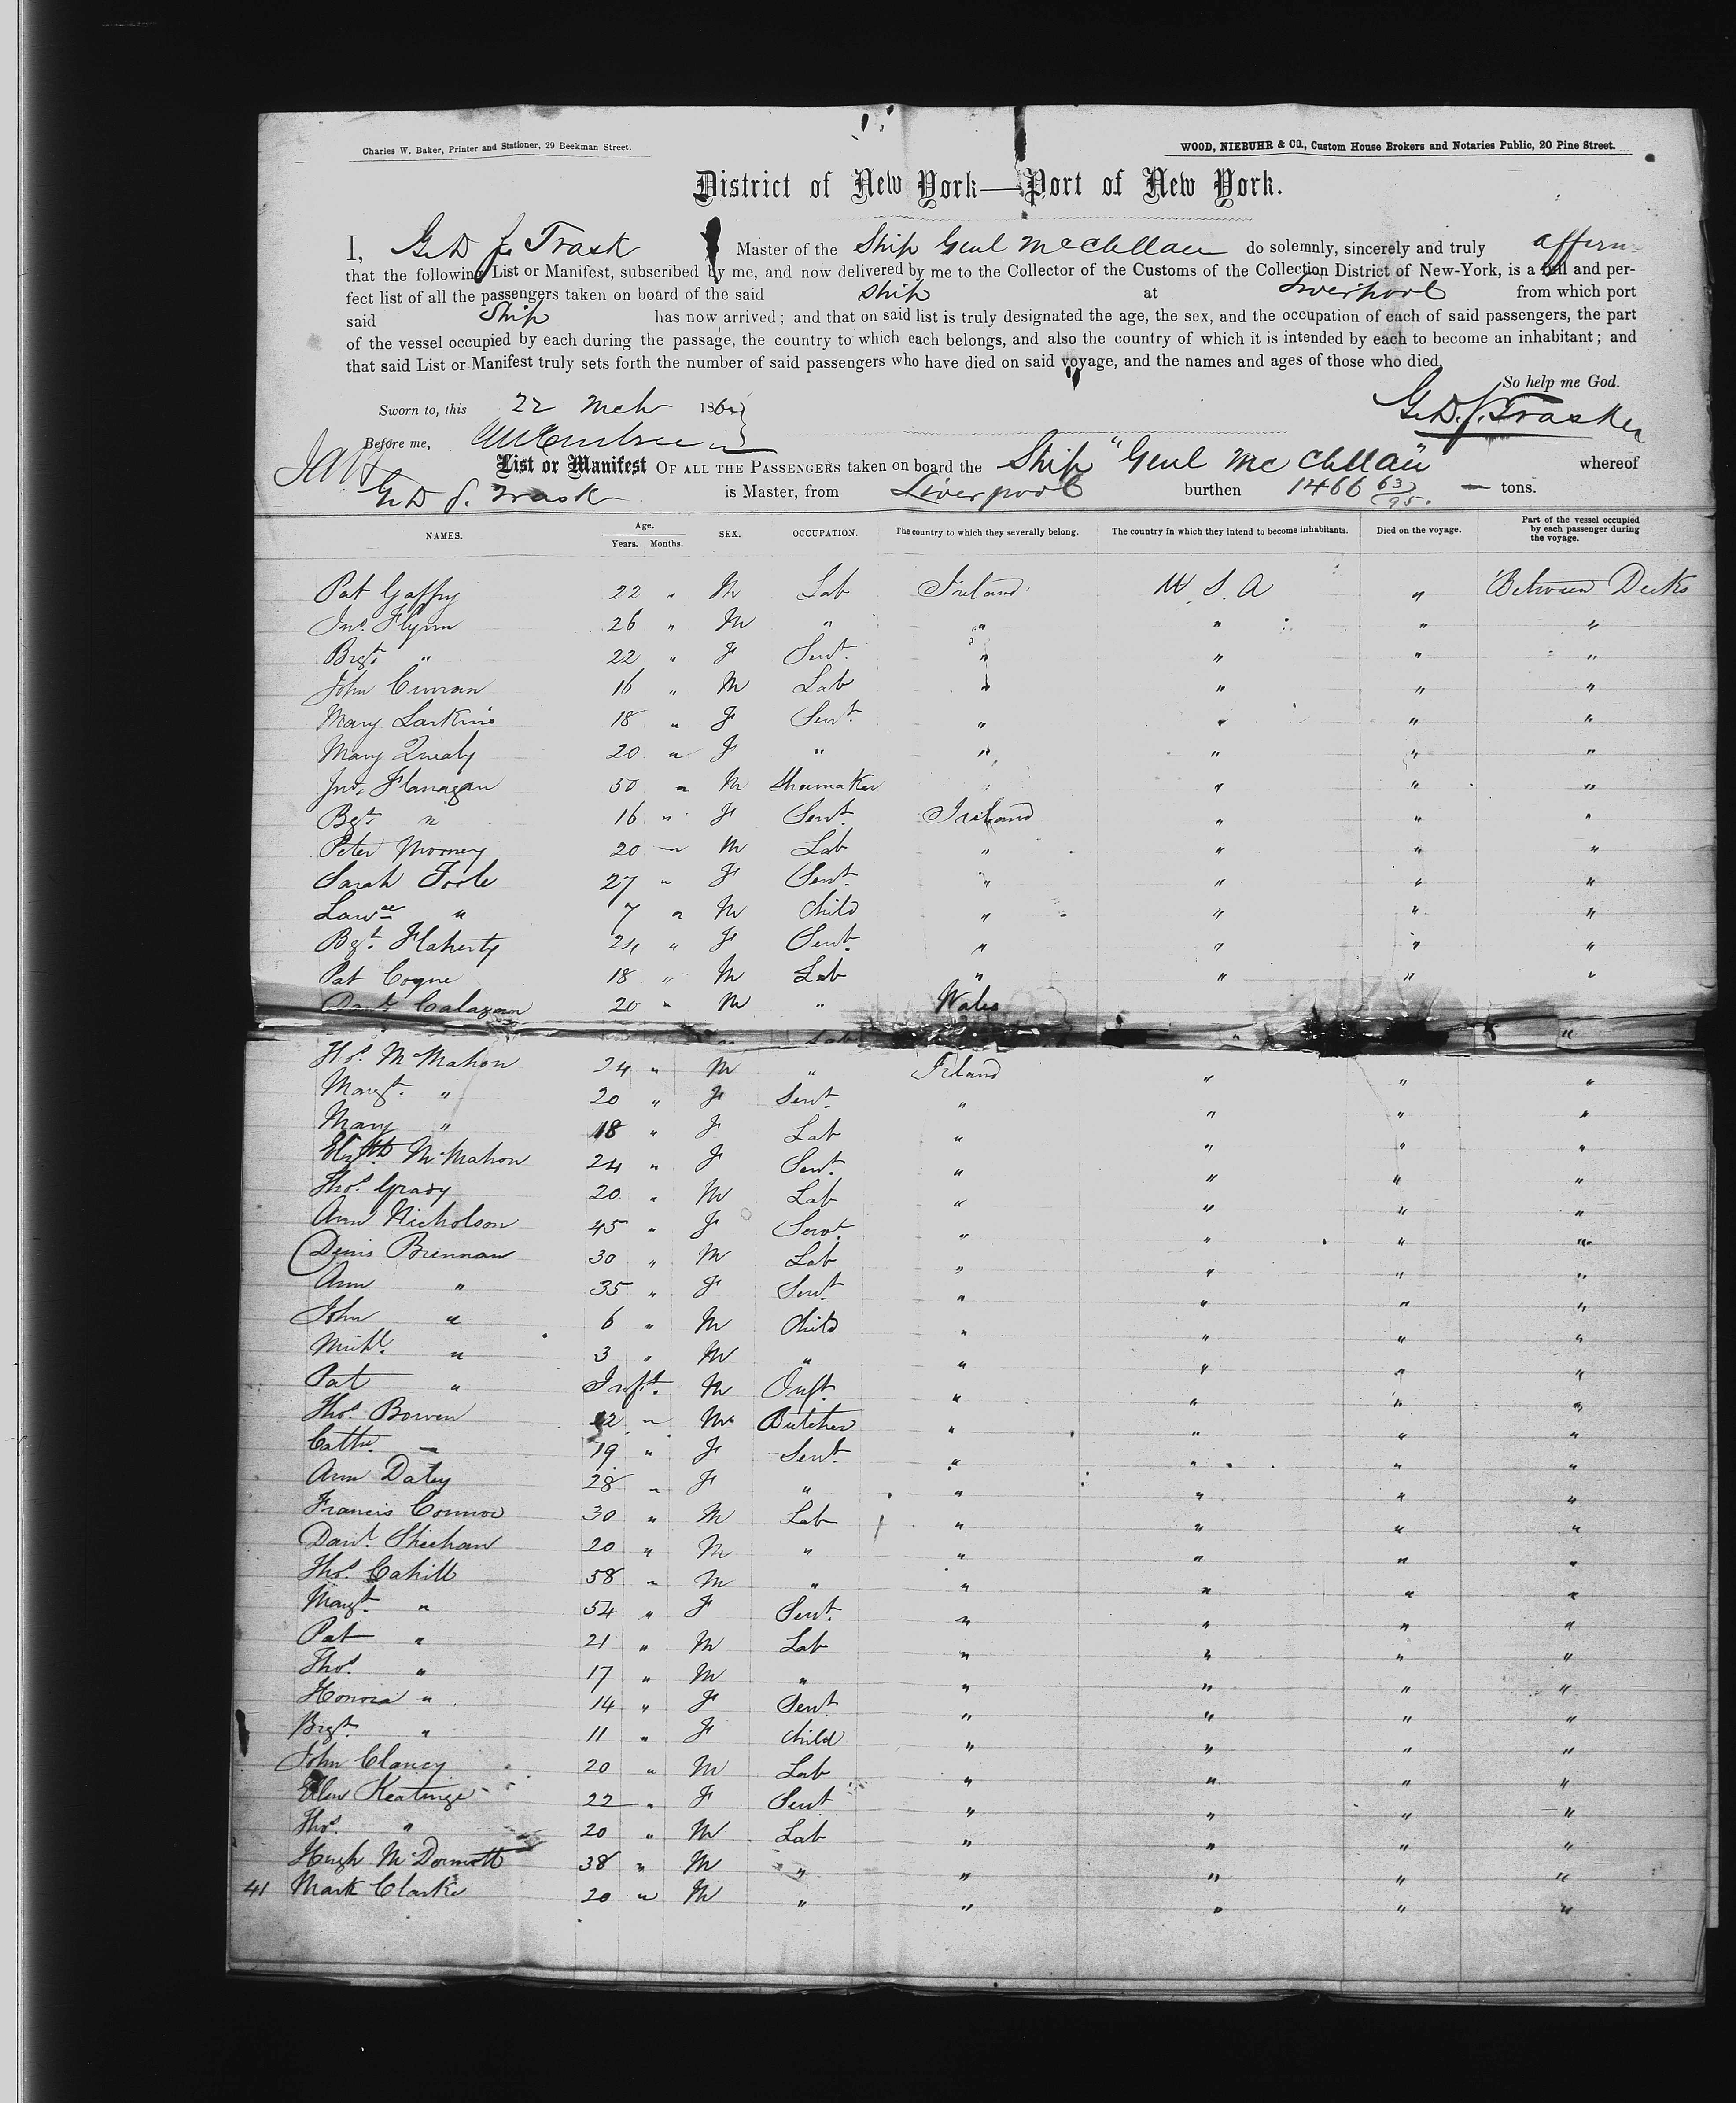 Charles W. Baker, Printer and Stationer, 29 Beekman Street.
WOOD, NIEBUHR & CO., Custom House Brokers and Notaries Public, 20 Pine Street.
District of New York—Port of New York.
I, G. D. S. Trask Master of the Ship Genl McClellan do solemnly, sincerely and truly affirm
that the following List or Manifest, subscribed by me, and now delivered by me to the Collector of the Customs of the Collection District of New-York, is a full and per-
fect list of all the passengers taken on board of the said ship at Liverpool from which port
said Ship has now arrived; and that on said list is truly designated the age, the sex, and the occupation of each of said passengers, the part
of the vessel occupied by each during the passage, the country to which each belongs, and also the country of which it is intended by each to become an inhabitant; and
that said List or Manifest truly sets forth the number of said passengers who have died on said voyage, and the names and ages of those who died.
So help me God.
Sworn to, this 22 Mch 186
G. D. S. Trask
Before me,
List or Manifest OF ALL THE PASSENGERS taken on board the Ship "Genl McClellan" whereof
G D S. Trask is Master, from Liverpool burthen 1466 63/95 — tons.
NAMES. Age. Years. Months. SEX. OCCUPATION. The country to which they severally belong. The country in which they intend to become inhabitants. Died on the voyage. Part of the vessel occupied by each passenger during the voyage.
Pat Gaffny 22 " M Lab Ireland U. S. A " Between Decks
Jno. Flynn 26 " M " " " " "
Brgt. " 22 " F Servt. " " " "
John Curran 16 " M Lab " " " "
Mary Larkins 18 " F Servt. " " " "
Mary Quealy 20 " F " " " " "
Jno. Flanagan 50 " M Shoemaker " " "
Bgt. " 16 " F Servt. Ireland " " "
Peter Mooney 20 " M Lab " " " "
Sarah Toole 27 " F Servt. " " " "
Lawce " 7 " M Child " " " "
Bgt. Flaherty 24 " F Servt. " " " "
Pat Coyne 18 " M Lab " " " "
Danl. Calagan 20 " M " Wales
Thos. McMahon 24 " M " Ireland " " "
Margt. " 20 " F Servt. " " " "
Mary " 18 " F Lab " " " "
Elizth. McMahon 24 " F Servt. " " " "
Thos. Grady 20 " M Lab " " " "
Ann Nicholson 45 " F Servt. " " " "
Denis Brennan 30 " M Lab " " " "
Ann " 35 " F Servt. " " " "
John " 6 " M Child " " " "
Michl. " 3 " M " " " " "
Pat " Inft. M Inft. " " " "
Thos. Bowen 22 " M Butcher " " " "
Cathe. — 19 " F Servt. " " " "
Ann Daley 28 " F " " " " "
Francis Connor 30 " M Lab " " " "
Danl. Sheehan 20 " M " " " " "
Thos. Cahill 58 " M " " " " "
Margt. " 54 " F Servt. " " " "
Pat " 21 " M Lab " " " "
Thos. " 17 " M " " " " "
Honora " 14 " F Servt " " " "
Brgt. " 11 " F Child " " " "
John Clancy 20 " M Lab " " " "
Ellen Keatinge 22 " F Servt " " " "
Thos. " 20 " M Lab " " " "
Hugh McDermott 38 " M " " " " "
41 Mark Clarke 20 " M " " " " "